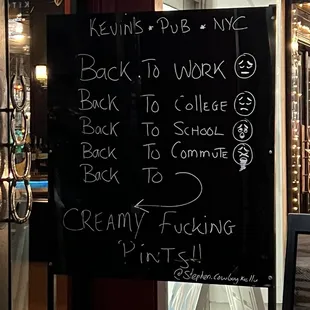 KEVIN'S • PUB • NYC
BACK TO WORK
BACK TO COLLEGE
BACK TO SCHOOL
BACK TO COMMUTE
BACK TO
CREAMY FUCKING
PINTS!!